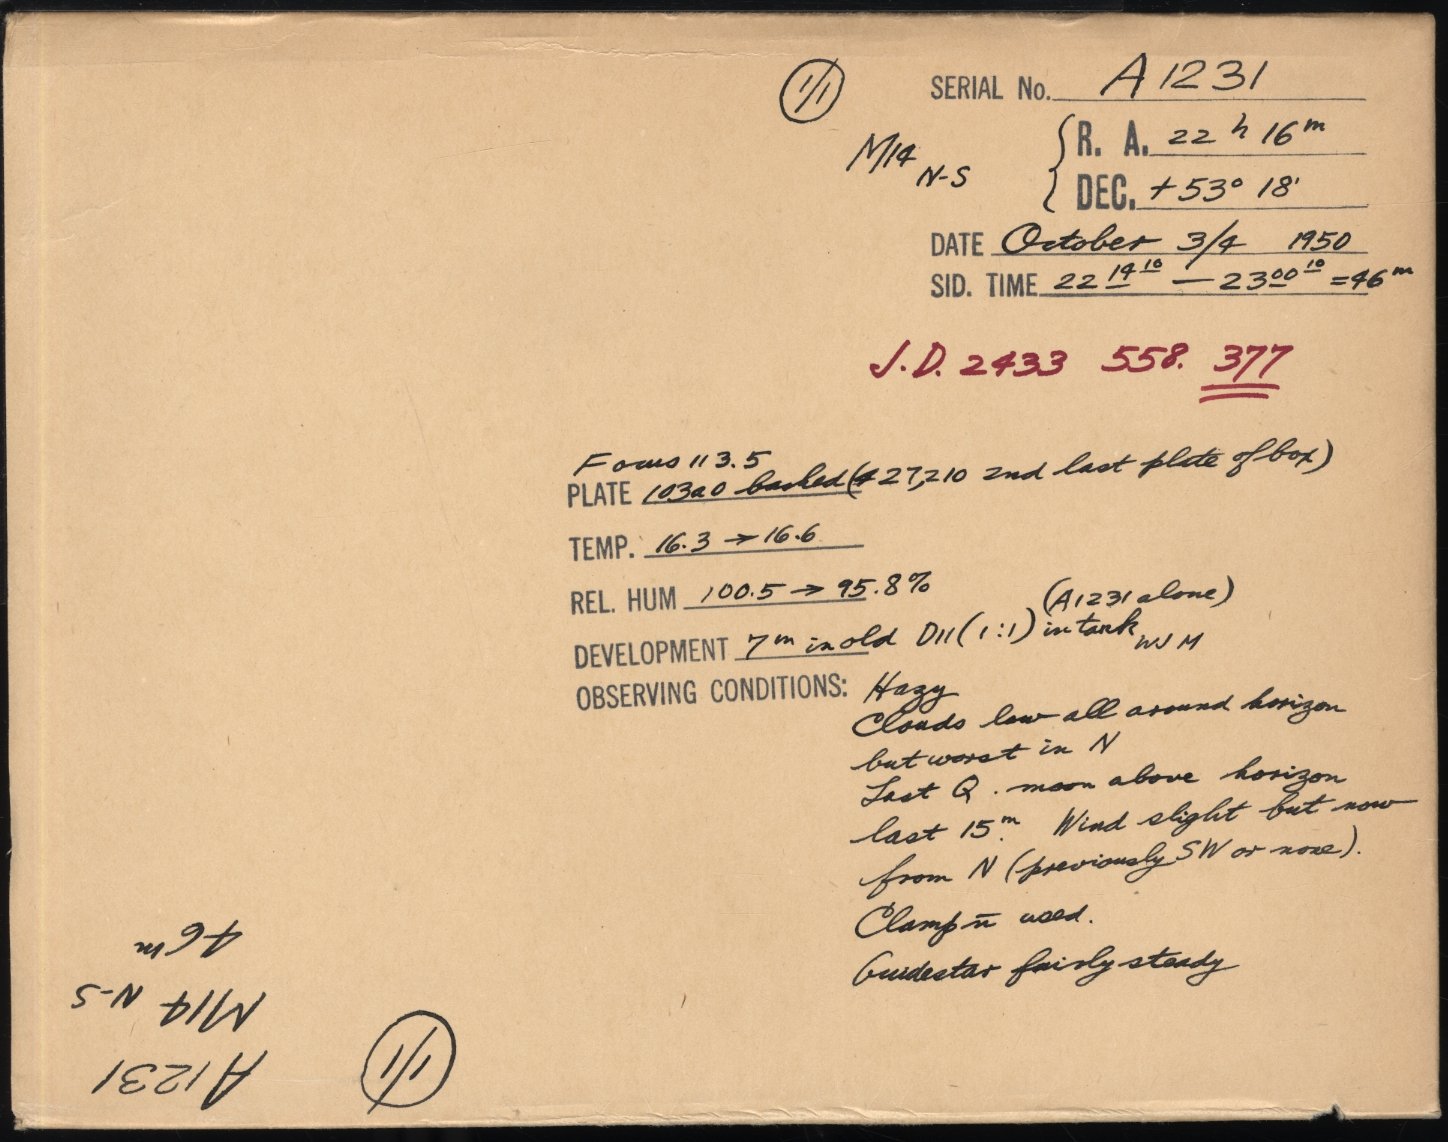 1/1
SERIAL No. A1231
M14 N-S
R. A. 22 h 16 m
DEC. +53° 18'
DATE October 3/4 1950
SID. TIME 22 14 10 — 23 00 10 = 46 m
J.D. 2433 558. 377
Focus 113.5
PLATE 103a0 backed (# 27,210 2nd last plate of box)
TEMP. 16.3 → 16.6
REL. HUM 100.5 → 95.8%
(A1231 alone)
DEVELOPMENT 7 m in old D11 (1:1) in tank WJM
OBSERVING CONDITIONS: Hazy
Clouds low all around horizon
but worst in N
Last Q. moon above horizon
last 15 m. Wind slight but now
from N (previously SW or none).
Clamp n̄ used.
Guidestar fairly steady
A1231
M14 N-S
46 m
1/1